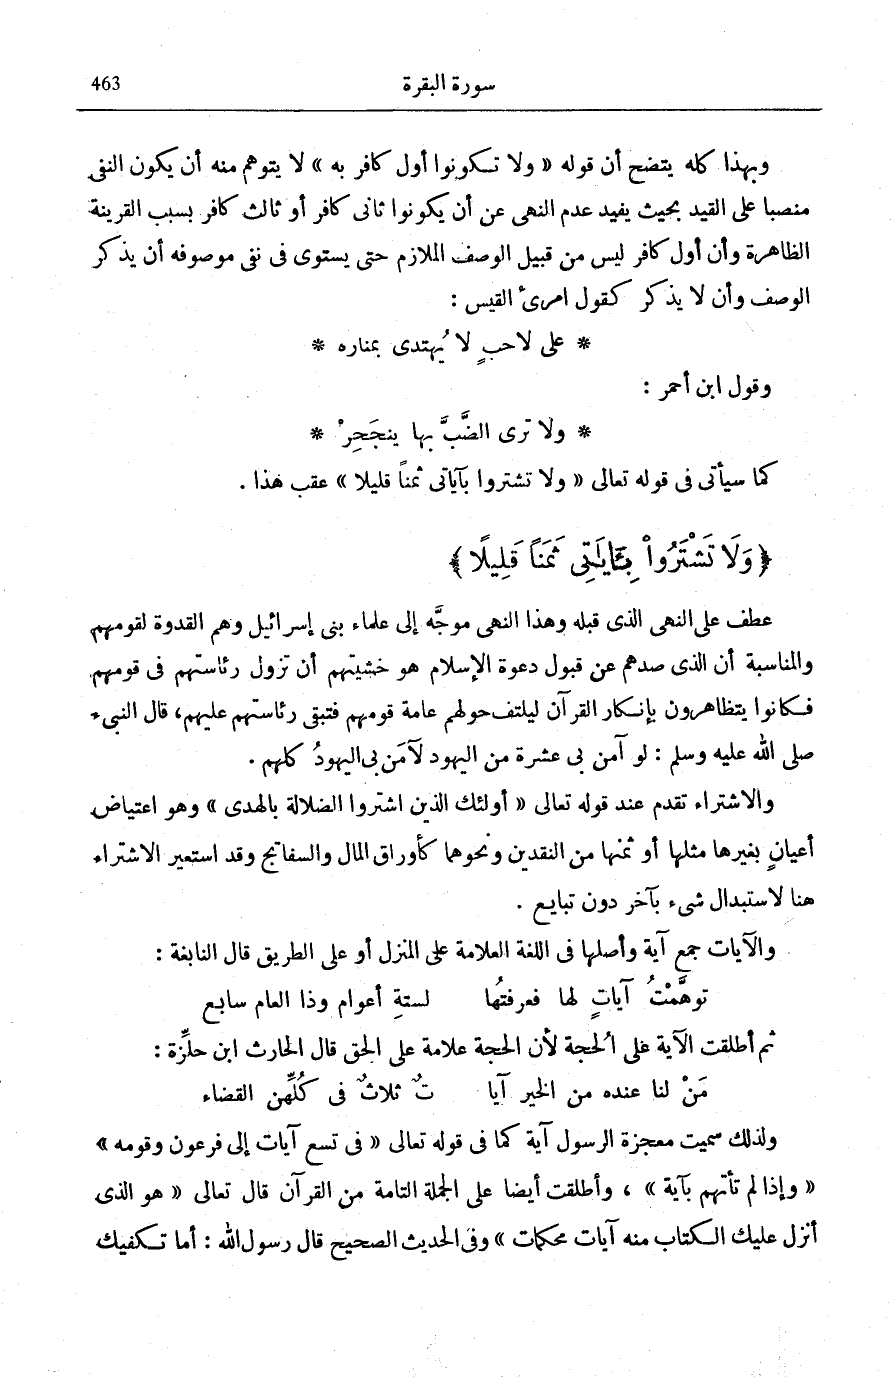 سورة البقرة 463
وبهذا كله يتضح أن قوله « ولا تكونوا أول كافر به » لا يتوهم منه أن يكون النفى
منصبا على القيد بحيث يفيد عدم النهى عن أن يكونوا ثانى كافر أو ثالث كافر بسبب القرينة
الظاهرة وأن أول كافر ليس من قبيل الوصف الملازم حتى يستوى فى نفى موصوفه أن يذكر
الوصف وأن لا يذكر كقول امرئ القيس :
* على لاحبٍ لا يُهتدى بمناره *
وقول ابن أحمر :
* ولا ترى الضَّبَّ بها ينجَحِرْ *
كما سيأتى فى قوله تعالى « ولا تشتروا بآياتى ثمناً قليلا » عقب هذا .
﴿وَلَا تَشْتَرُواْ بِـَٔايَٰتِى ثَمَنًا قَلِيلًا﴾
عطف على النهى الذى قبله وهذا النهى موجَّه إلى علماء بنى إسرائيل وهم القدوة لقومهم
والمناسبة أن الذى صدهم عن قبول دعوة الإسلام هو خشيتهم أن تزول رئاستهم فى قومهم
فكانوا يتظاهرون بإنكار القرآن ليلتف حولهم عامة قومهم فتبقى رئاستهم عليهم، قال النبىء
صلى الله عليه وسلم : لو آمن بى عشرة من اليهود لآمَن بى اليهودُ كلهم .
والاشتراء تقدم عند قوله تعالى « أولئك الذين اشتروا الضلالة بالهدى » وهو اعتياض
أعيانٍ بغيرها مثلها أو ثمنها من النقدين ونحوهما كأوراق المال والسفاتج وقد استعير الاشتراء
هنا لاستبدال شىء بآخر دون تبايع .
والآيات جمع آية وأصلها فى اللغة العلامة على المنزل أو على الطريق قال النابغة :
توهَّمْتُ آياتٍ لها فعرفتُها لستةِ أعوام وذا العام سابع
ثم أطلقت الآية على الحُجة لأن الحجة علامة على الحق قال الحارث ابن حلِّزة :
مَنْ لنا عنده من الخير آيا تٌ ثلاثٌ فى كُلِّهن القضاء
ولذلك سميت معجزة الرسول آية كما فى قوله تعالى « فى تسع آيات إلى فرعون وقومه »
« وإذا لم تأتهم بآية » ، وأطلقت أيضا على الجملة التامة من القرآن قال تعالى « هو الذى
أنزل عليك الكتاب منه آيات محكمات » وفى الحديث الصحيح قال رسول الله : أما تكفيك